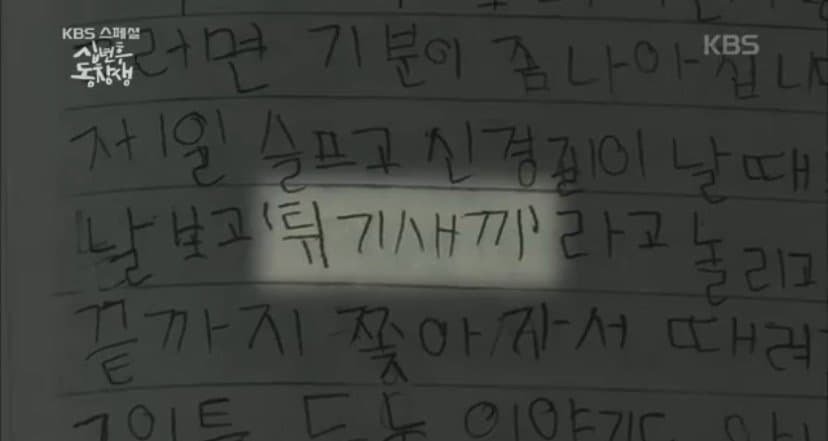 KBS 스페셜
십년후
동창생
KBS
러면 기분이 좀 나아집니다
제일 슬프고 신경질이 날 때
날 보고 '튀기새끼'라고 놀리고
끝까지 쫓아
때려